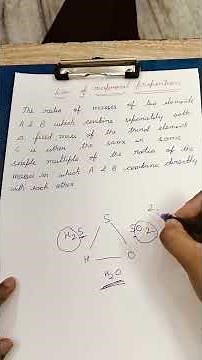 Law of reciprocal proportions
The ratio of masses of two elements
A & B which combine separately with
a fixed mass of the third element
C is either the same or some
simple multiple of the ratio of the
masses in which A & B combine directly
with each other
2
S
H₂S
SO₂
H
O
H₂O